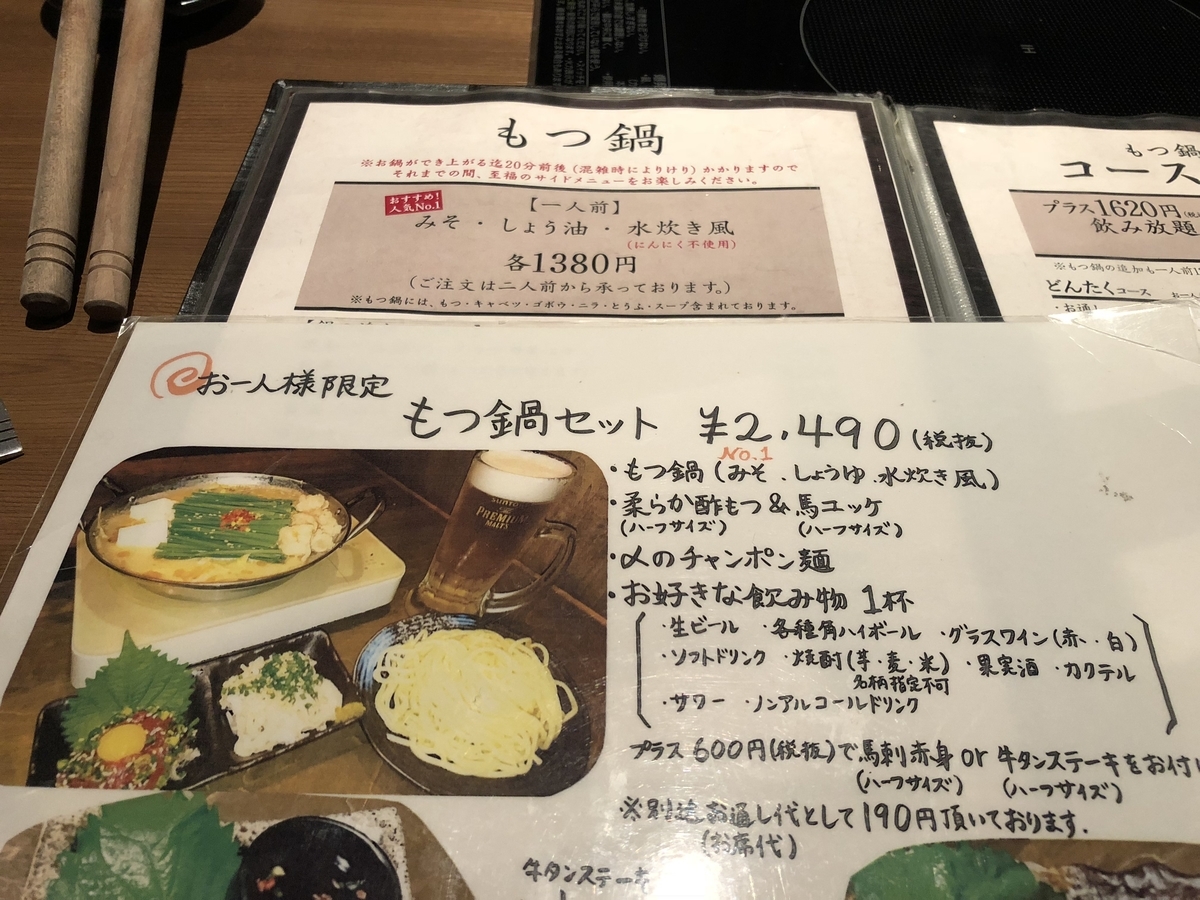 もつ鍋
※お鍋ができ上がる迄20分前後(混雑時によりけり)かかりますので
それまでの間、至福のサイドメニューをお楽しみください。
おすすめ!
人気No.1
【一人前】
みそ・しょう油・水炊き風
(にんにく不使用)
各1380円
(ご注文は二人前から承っております。)
※もつ鍋には、もつ・キャベツ・ゴボウ・ニラ・とうふ・スープ含まれております。
もつ鍋
コース
プラス1620円
飲み放題
※もつ鍋の追加も一人前
どんたくコース
・お通し
お一人様限定
もつ鍋セット ¥2,490(税抜)
No.1
・もつ鍋(みそ、しょうゆ、水炊き風)
・柔らか酢もつ&馬ユッケ
(ハーフサイズ) (ハーフサイズ)
・〆のチャンポン麺
・お好きな飲み物 1杯
・生ビール ・各種角ハイボール ・グラスワイン(赤・白)
・ソフトドリンク ・焼酎(芋・麦・米) ・果実酒 ・カクテル
名柄指定不可
・サワー ・ノンアルコールドリンク
プラス600円(税抜)で馬刺赤身 or 牛タンステーキをお付け
(ハーフサイズ) (ハーフサイズ)
※別途お通し代として190円頂いております.
(お席代)
牛タンステーキ
SUNTORY
THE PREMIUM
MALT'S